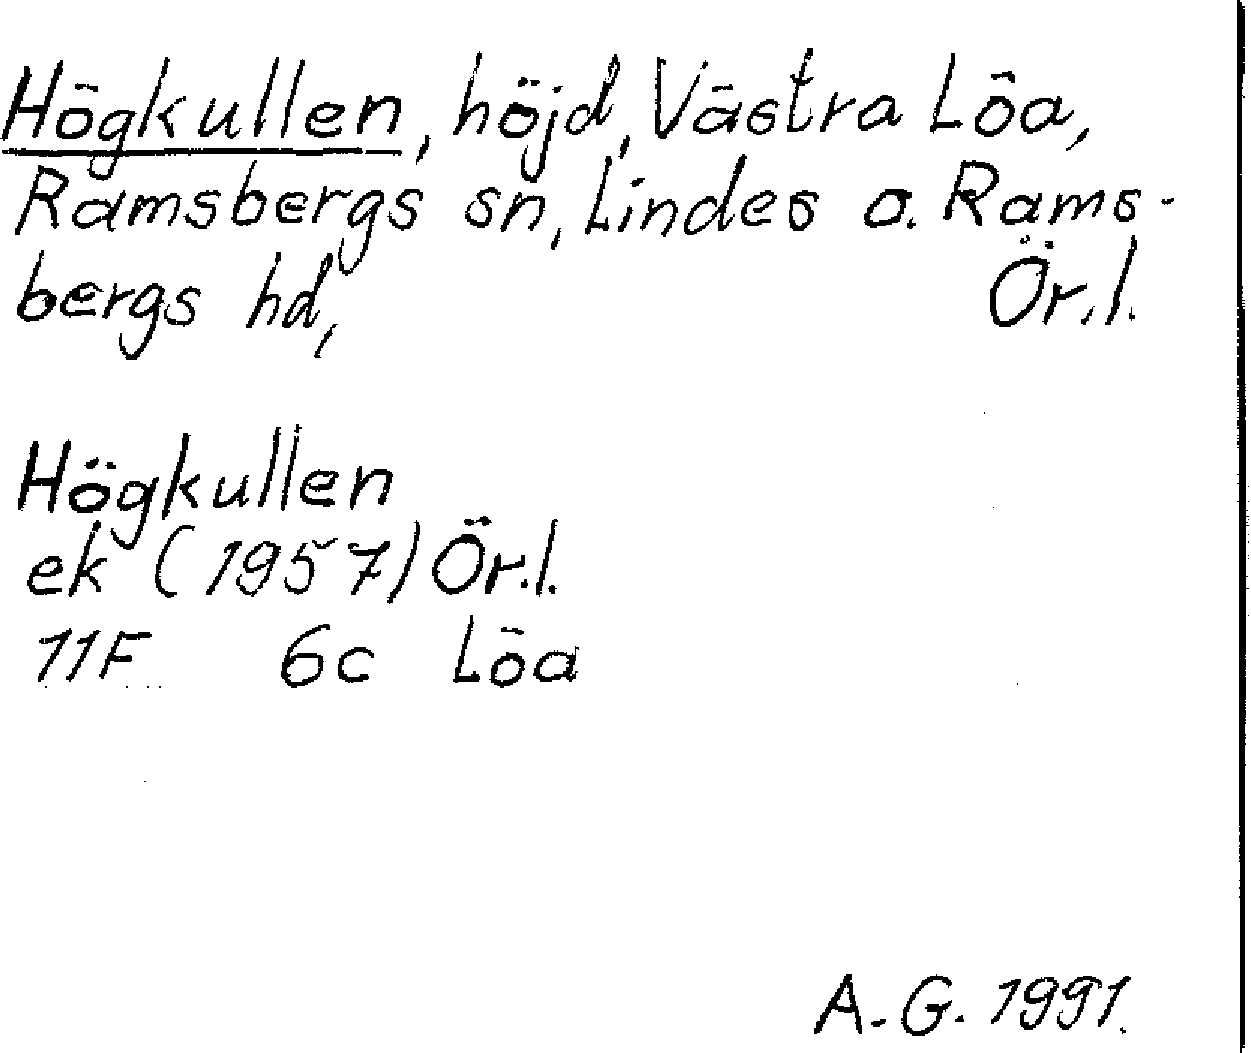 Högkullen, höjd, Västra Löa,
Ramsbergs sn, Lindes o. Rams-
bergs hd, Ör.l.
Högkullen
ek (1957) Ör.l.
11F 6c Löa
A.G. 1991.